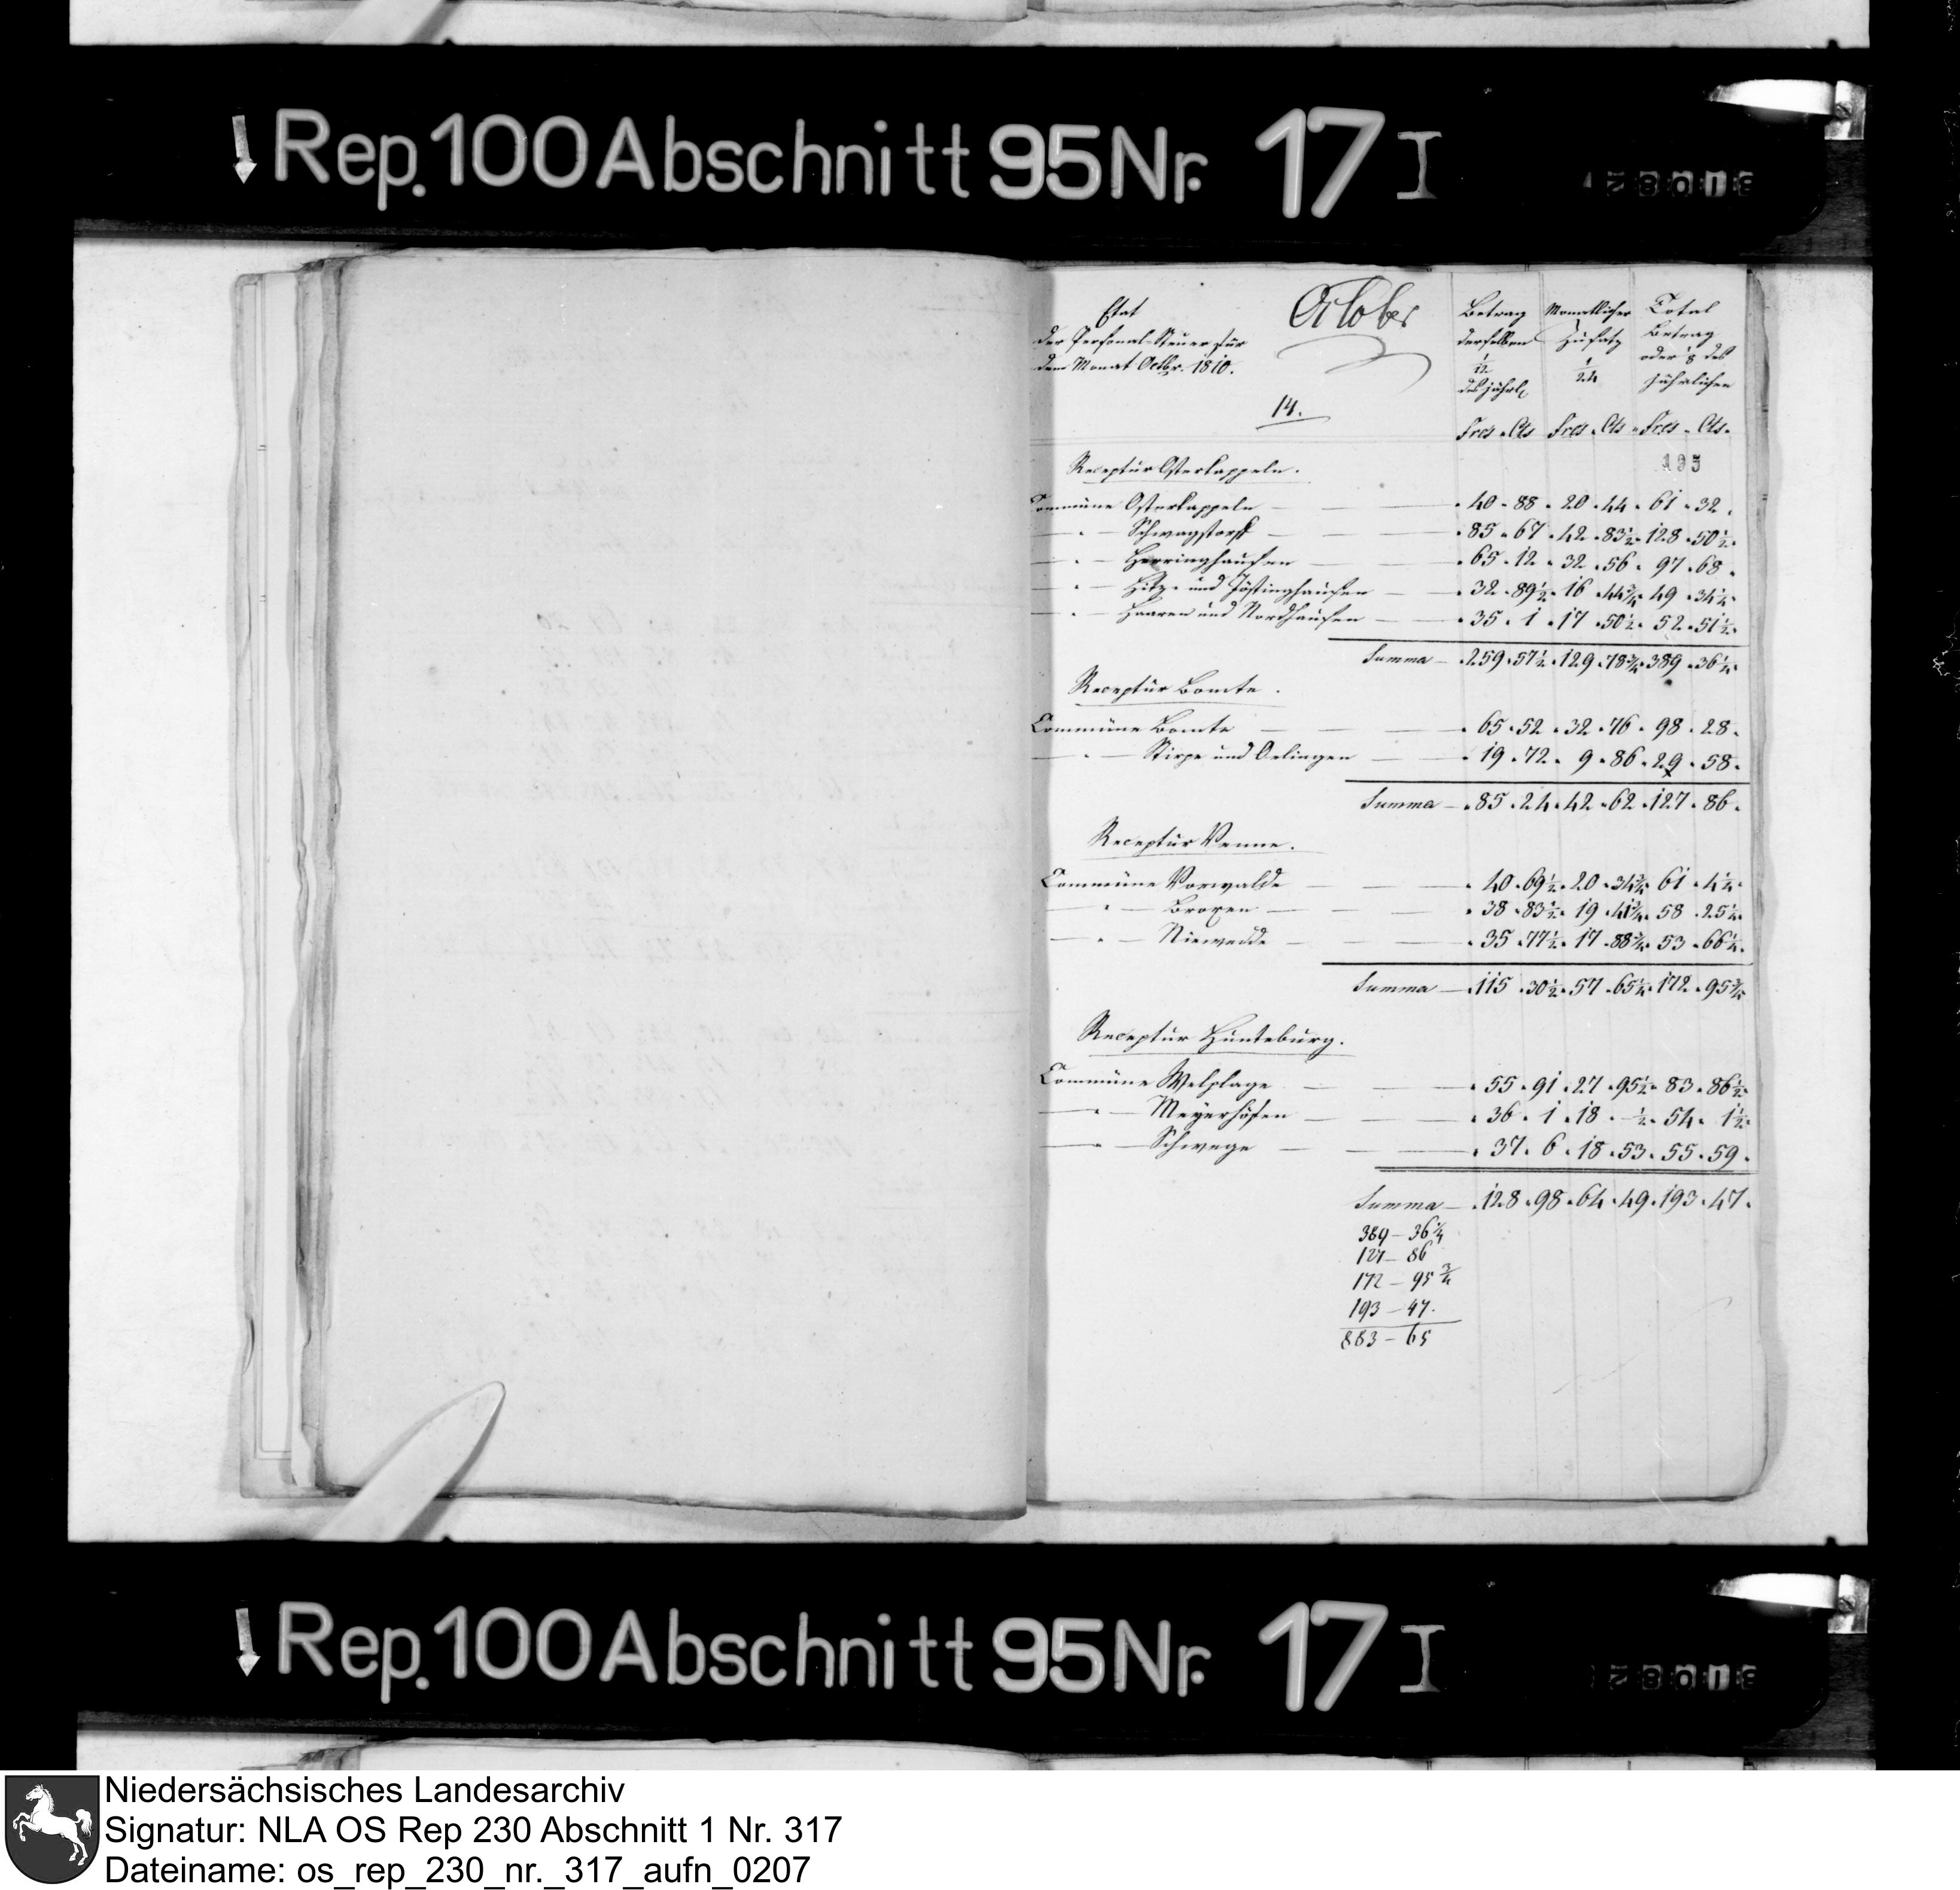 Rep. 100 Abschnitt 95 Nr. 17 I
Etat
der Personal-Steuer für
dem Monat Octbr. 1810.
October
14.
Betrag derselben 1/12 des jährl.
Monatlicher Zusatz 1/24
Total Betrag oder 1/8 des jährlichen
Frcs. Cts Frcs. Cts. Frcs. Cts.
193
Receptur Osterkappeln.
Commüne Osterkappeln — 40. 88. 20. 44. 61. 32.
" — Schwagstorff — 85. 67. 42. 83½. 128. 50½.
" — Herringhausen — 65. 12. 32. 56. 97. 68.
" — Hitz- und Jöstinghausen — 32. 89½. 16. 44¾. 49. 34¼.
" — Haaren und Nordhausen — 35. 1. 17. 50½. 52. 51½.
Summa — 259. 57½. 129. 78¾. 389. 36¼.
Receptur Bomte.
Commüne Bomte — 65. 52. 32. 76. 98. 28.
" — Stirpe und Oelingen — 19. 72. 9. 86. 29. 58.
Summa — 85. 24. 42. 62. 127. 86.
Receptur Venne.
Commüne Vorwalde — 40. 69½. 20. 34¾. 61. 4¼.
" — Broxen — 38. 83½. 19. 41¾. 58. 25¼.
" — Niewedde — 35. 77½. 17. 88¾. 53. 66¼.
Summa — 115. 30½. 57. 65¼. 172. 95¾.
Receptur Hunteburg.
Commüne Welplage — 55. 91. 27. 95½. 83. 86½.
" — Meyerhöfen — 36. 1. 18. — ½. 54. 1½.
" — Schwege — 37. 6. 18. 53. 55. 59.
Summa — 128. 98. 64. 49. 193. 47.
389 — 36¼
127 — 86
172 — 95¾
193 — 47.
883 — 65
Rep. 100 Abschnitt 95 Nr. 17 I
Niedersächsisches Landesarchiv
Signatur: NLA OS Rep 230 Abschnitt 1 Nr. 317
Dateiname: os_rep_230_nr._317_aufn_0207